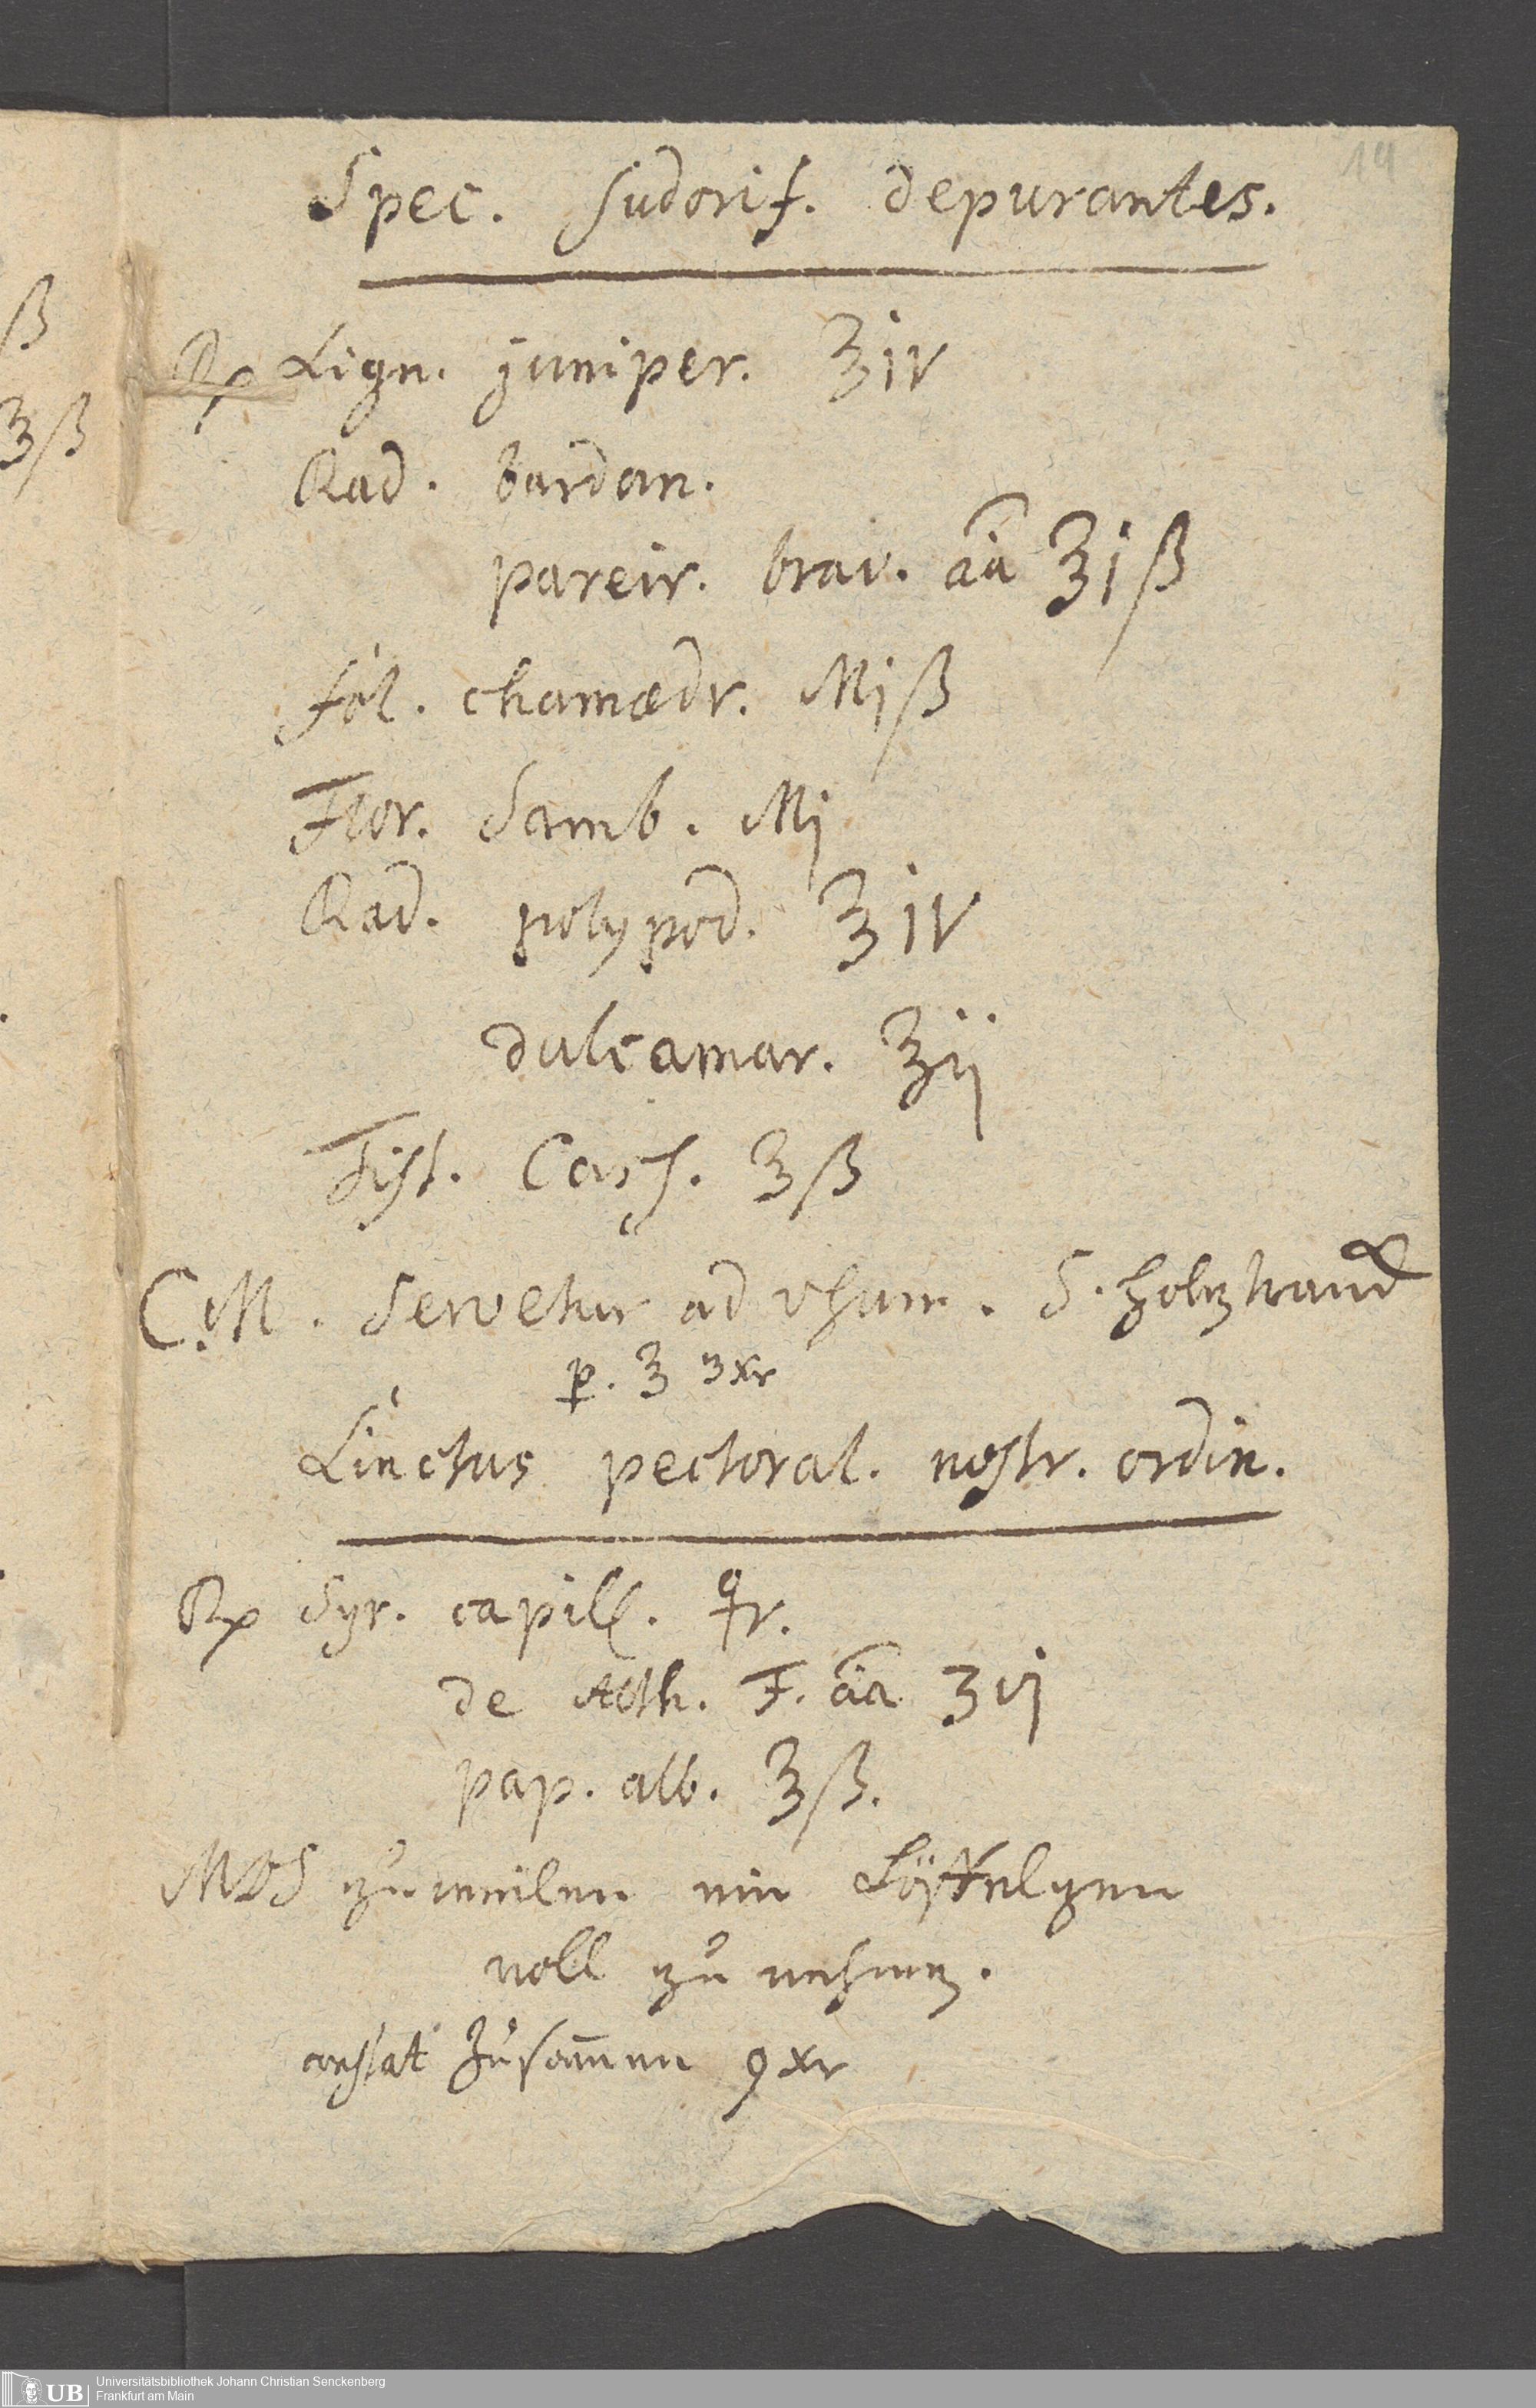 14
Spec. sudorif. depurantes.
ß
℞ Lign. juniper. ℥iv
ʒß
Rad. bardan.
pareir. brav. aā ℥jß
Fol. chamædr. Mjß
Flor. Samb. Mj
Rad. polypod. ℥iv
dulcamar. ℥ij
Fist. Cass. ʒß
C.M. Servetur ad vsum. S. Holztranck
p. ℥ 3 xr
Linctus pectoral. nostr. ordin.
℞ Syr. capill. ♀r.
de Alth. F. aā ʒvj
pap. alb. ℥ß.
MDS zuweilen ein Löffelgen
voll zu nehmen.
constat zusam̄en 9 xr
UB Universitätsbibliothek Johann Christian Senckenberg
Frankfurt am Main